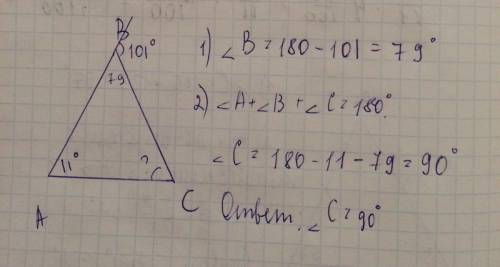 B
101°
79
11°
?
C
A
C
1) ∠B = 180 - 101 = 79°
2) ∠A + ∠B + ∠C = 180°.
∠C = 180 - 11 - 79 = 90°
Ответ. ∠C = 90°